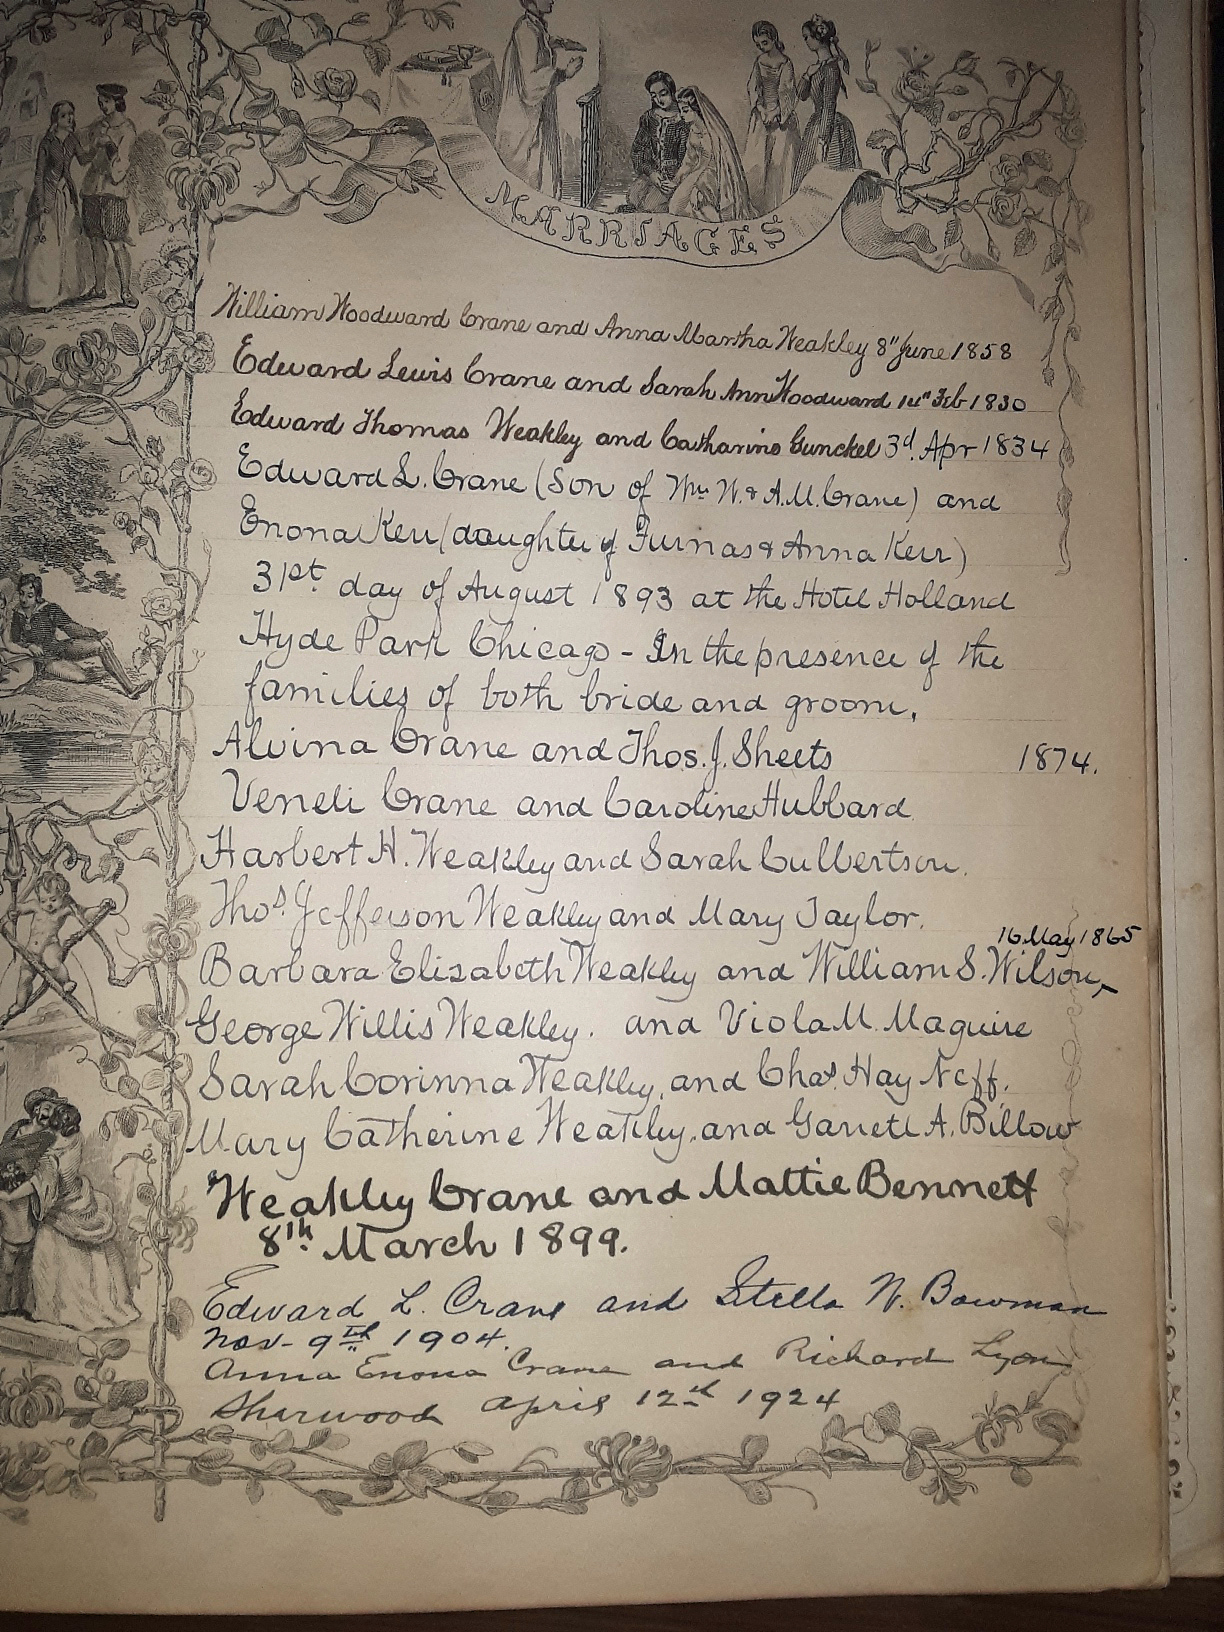 MARRIAGES
William Woodward Crane and Anna Martha Weakley 8" June 1858
Edward Lewis Crane and Sarah Ann Woodward 14" Feb 1830
Edward Thomas Weakley and Catharine Gunckel 3d. Apr 1834
Edward L. Crane (Son of Wm W. & A.M. Crane) and
Enona Kerr (daughter of Furnas & Anna Kerr)
31st. day of August 1893 at the Hotel Holland
Hyde Park Chicago - In the presence of the
families of both bride and groom.
Alvina Crane and Thos. J. Sheets 1874.
Veneli Crane and Caroline Hubbard
Harbert H. Weakley and Sarah Culbertson.
Thos. Jefferson Weakley and Mary Taylor.
16 May 1865
Barbara Elizabeth Weakley and William S. Wilson,
George Willis Weakley. and Viola M. Maguire
Sarah Corinna Weakley, and Chas. Hay Neff.
Mary Catherine Weakley, and Garrett A. Billow
Weakley Crane and Mattie Bennett
8th. March 1899.
Edward L. Crane and Stella N. Bowman
Nov- 9th 1904.
Anna Enona Crane and Richard Lyon
Sharwood April 12th 1924